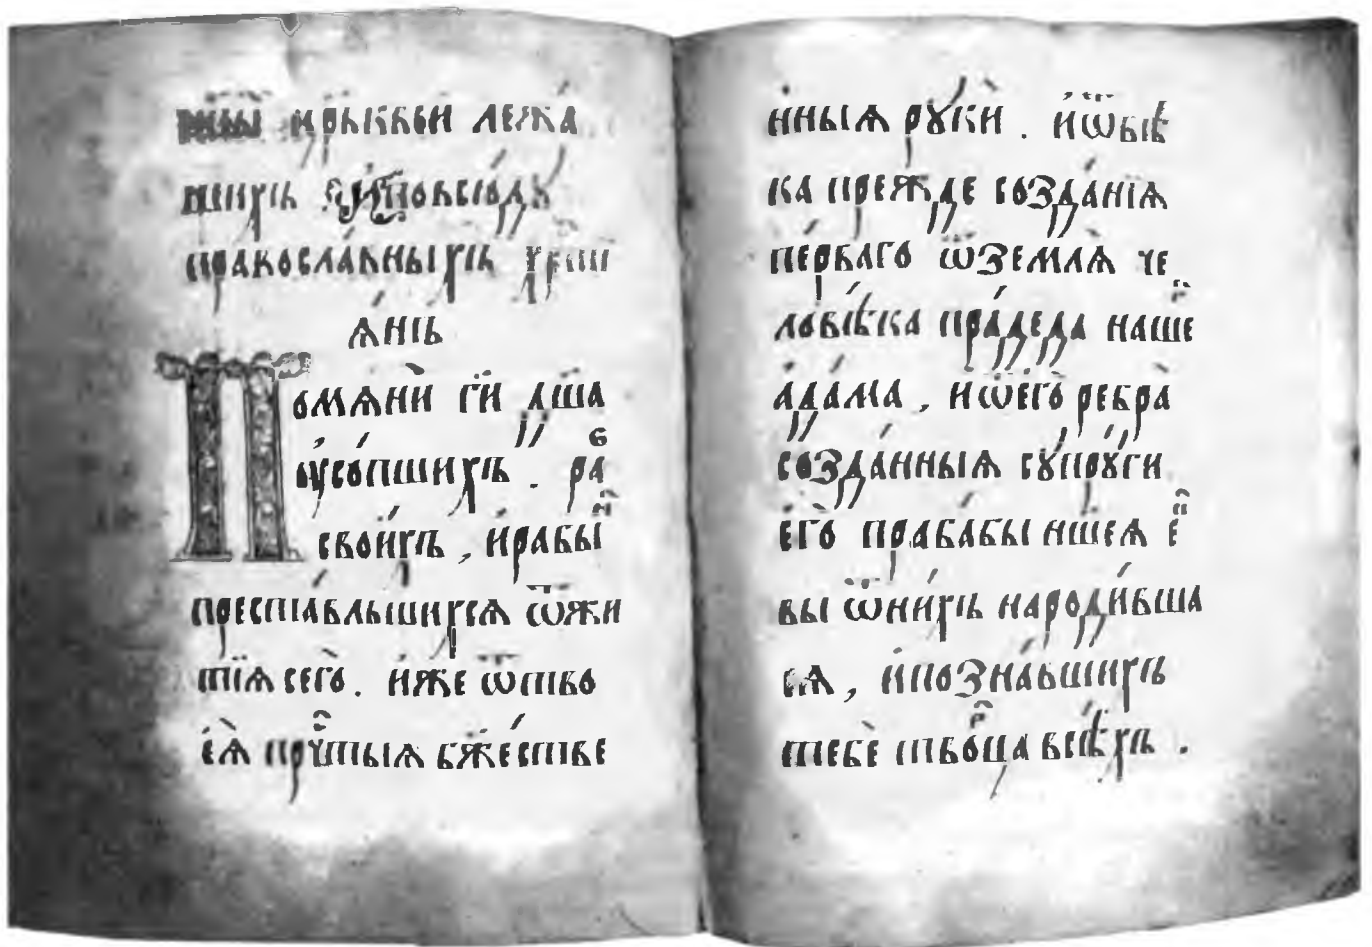 цр҃ькъвѝ лежа
ших̾ъ и҆повсю́дꙋ
правосла́вныхъ хрⷭ҇тї
ѧ́нъ
Помѧнѝ гѝ дш҃а
ᲂу҆со́пшихъ . раб
свои́хъ , и҆рабы́н
преста́вльшихсѧ ѿжи
тїѧ сегѡ̀ . и҆́же ѿтво
еѧ̀ прч҇тыѧ бж҃е́стве
нныѧ рꙋкѝ . и҆ѿвѣ
ка пре́жде созда́нїѧ
пе́рваго ѿземлѧ̀ че
ловѣ́ка пра́деда наше
а҆да́ма , и҆ѿєго̀ребра̀
созда́нныѧ сꙋпрꙋ́ги
є҆го̀ праба́бы нш҃еѧ є҆
вы ѿни́хъ народи́вша
сѧ , и҆позна́вшихъ
тебѐ творⷬ҇ца всѣ́хъ .